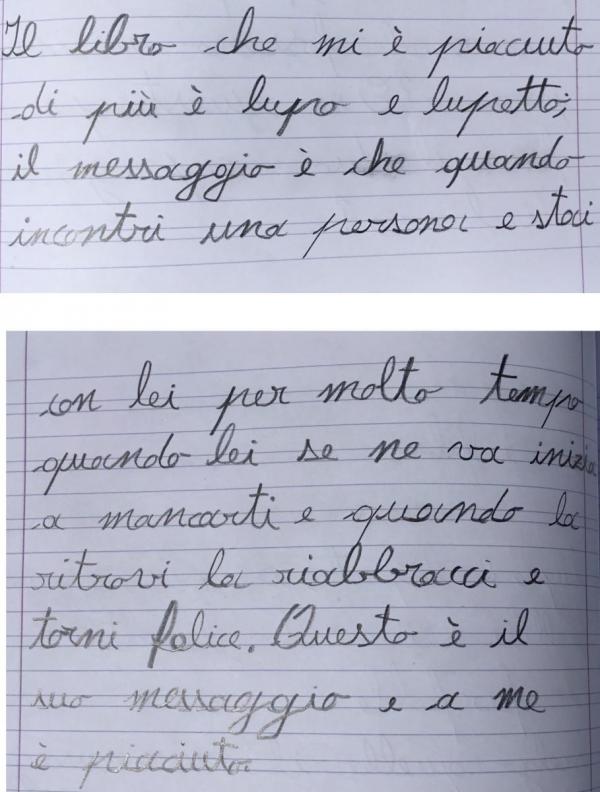 Il libro che mi è piaciuto
di più è lupo e lupetto;
il messaggio è che quando
incontri una persona e stai
con lei per molto tempo
quando lei se ne va inizia
a mancarti e quando la
ritrovi la riabbracci e
torni felice. Questo è il
suo messaggio e a me
è piaciuto.